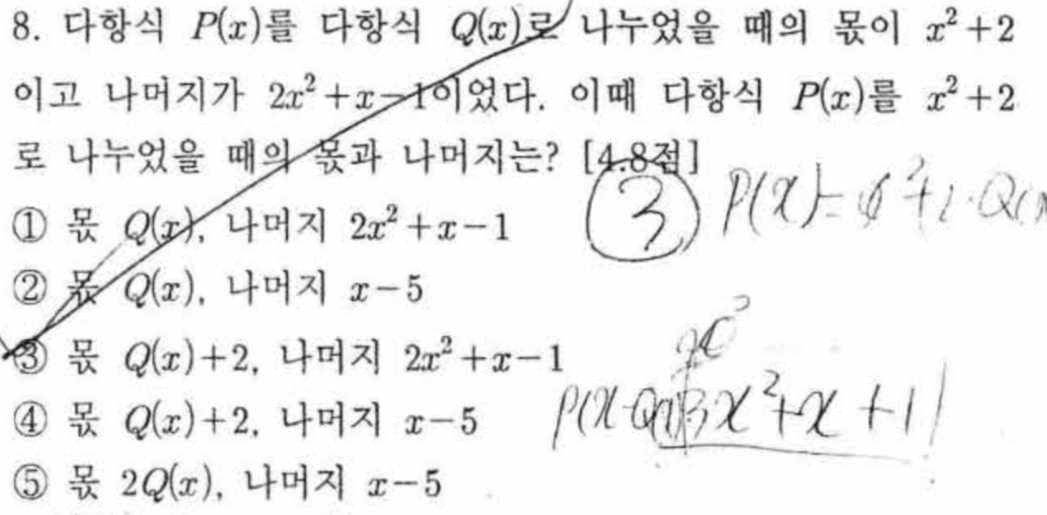 8. 다항식 P(x)를 다항식 Q(x)로 나누었을 때의 몫이 x²+2
이고 나머지가 2x²+x-1이었다. 이때 다항식 P(x)를 x²+2
로 나누었을 때의 몫과 나머지는? [4.8점]
① 몫 Q(x), 나머지 2x²+x-1
② 몫 Q(x), 나머지 x-5
③ 몫 Q(x)+2, 나머지 2x²+x-1
④ 몫 Q(x)+2, 나머지 x-5
⑤ 몫 2Q(x), 나머지 x-5
3
P(x)=
x²+x+1